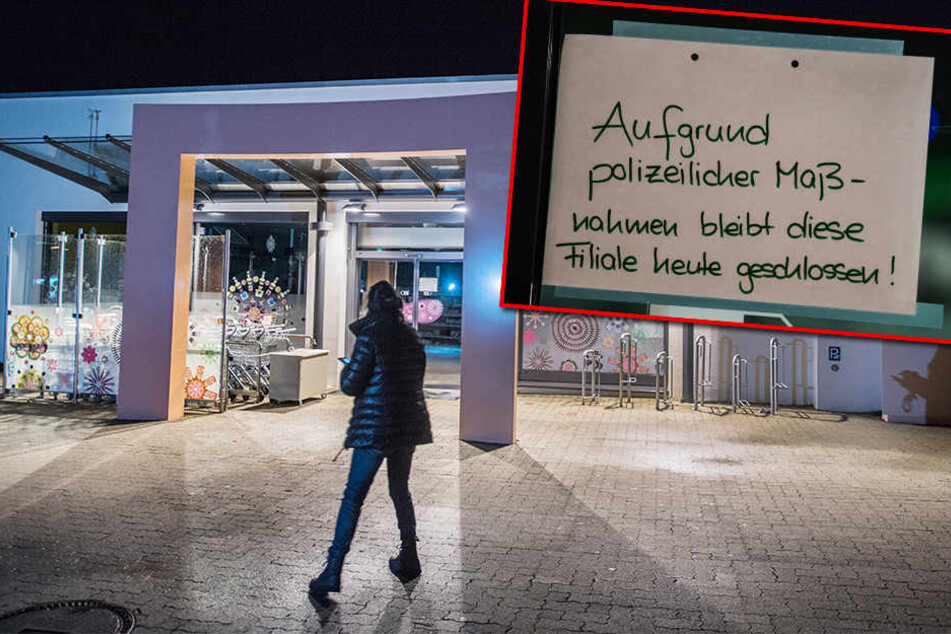 Aufgrund
polizeilicher Maß-
nahmen bleibt diese
Filiale heute geschlossen!
P